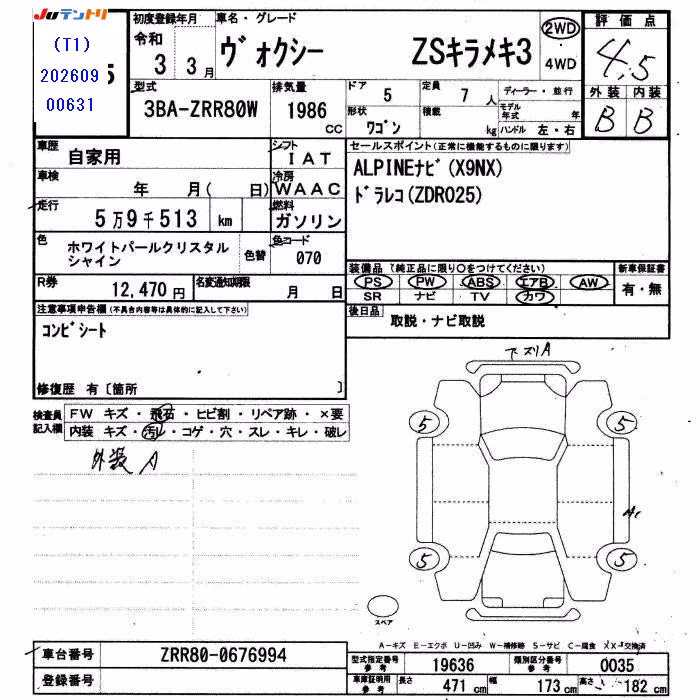 Juテントリ
(T1)
202609
00631
5
初度登録年月
令和
3 3月
車名・グレード
ヴォクシー ZSキラメキ3
2WD
4WD
評価点
4.5
外装 内装
B B
型式
3BA-ZRR80W
排気量
1986
CC
ドア
5
定員
7 人
ディーラー・並行
モデル年式 年
形状
ワゴン
積載
kg
ハンドル 左・右
車歴
自家用
シフト
IAT
車検
年 月( 日)
冷房
WAAC
走行
5万9千513 km
燃料
ガソリン
色
ホワイトパールクリスタル
シャイン
色替
色コード
070
R券
12,470 円
名変通知期限
月 日
セールスポイント(正常に機能するものに限ります)
ALPINEナビ(X9NX)
ドラレコ(ZDR025)
装備品 (純正品に限り○をつけてください)
PS PW ABS エアB AW
SR ナビ TV カワ
新車保証書
有・無
後日品
取説・ナビ取説
注意事項申告欄(不具合内容等は具体的に記入して下さい)
コンビシート
修復歴 有〔箇所 〕
検査員
記入欄
FW キズ・飛石・ヒビ割・リペア跡・×要
内装 キズ・汚レ・コゲ・穴・スレ・キレ・破レ
外装 A
下ズリA
5
5
5
5
スペア
A-キズ E-エクボ U-凹み W-補修跡 S-サビ C-腐食 X X-交換済
車台番号
ZRR80-0676994
登録番号
型式指定番号
参考
19636
類別区分番号
参考
0035
車庫証明用
参考
長さ
471 cm
幅
173 cm
高さ
182 cm